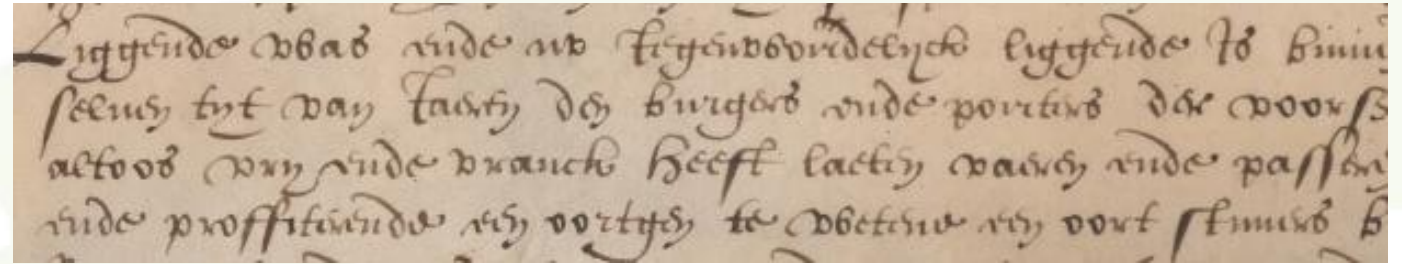 Liggende was ende nv tegenwoordelyck liggende Is binn
seluen tyt van Jaeren den burgers ende poirters der voors
altoos vry ende vranck heeft laeten vaeren ende passere
ende proffiterende een oortgen te wetene een oort stuuers b